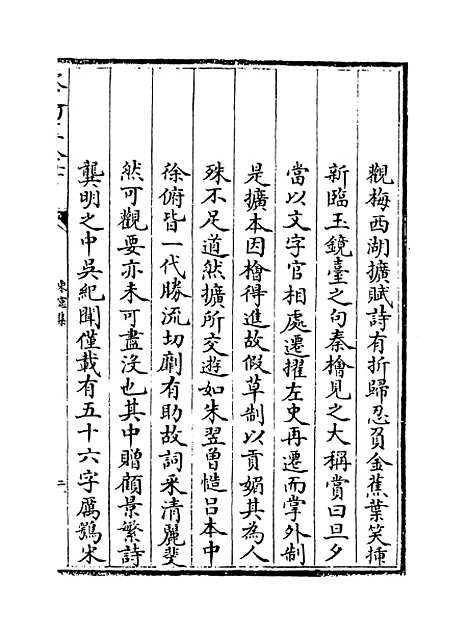 觀梅西湖擴賦詩有折歸忍負金蕉葉笑揷
新臨玉鏡臺之句秦檜見之大稱賞曰旦夕
當以文字官相處遷擢左史再遷而掌外制
是擴本因檜得進故假草制以貢媚其為人
殊不足道然擴所交遊如朱翌曾慥吕本中
徐俯皆一代勝流切劘有助故詞采清麗斐
然可觀要亦未可盡没也其中贈顧景繁詩
龔明之中吳紀聞僅載有五十六字厲鶚宋
東窓集
二